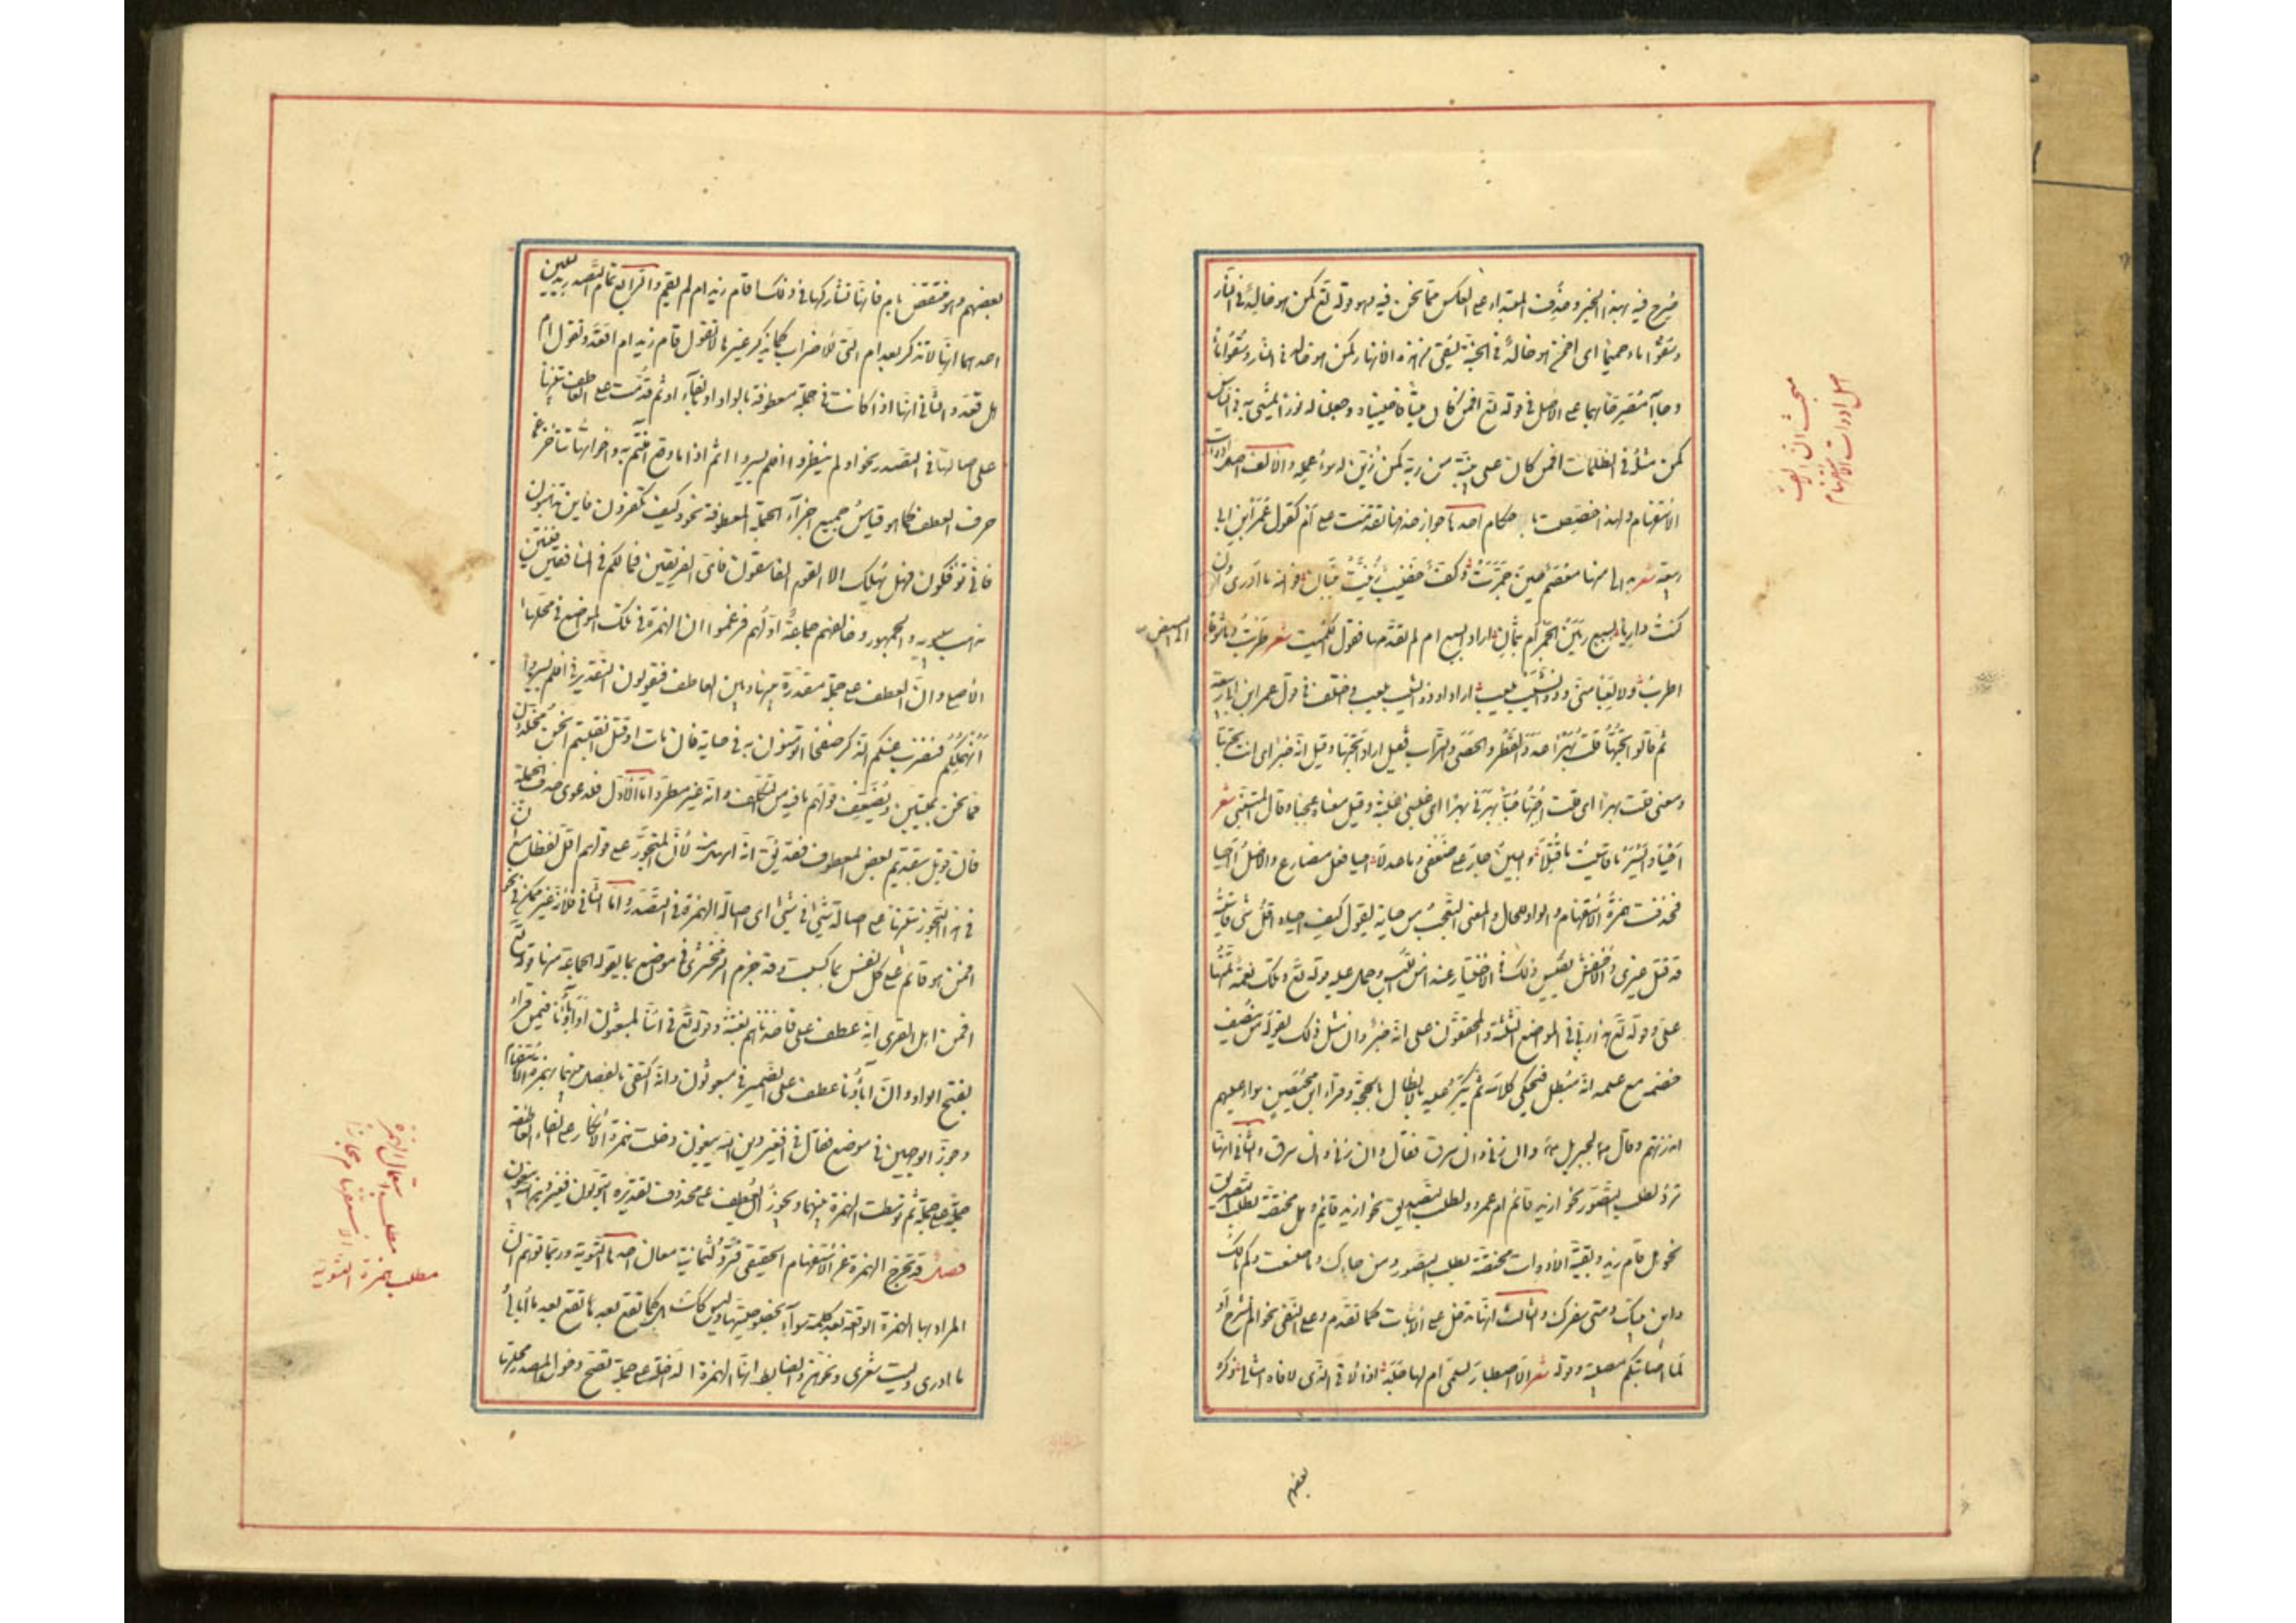 صرح فيه بهذا الخبر وحذف المبتداء على العكس مما نحن فيه وهو قوله تع كمن هو خالد فى النار
وسقوا ماء حميما اى امن هو خالد فى الجنة يسقى من هذه الانهار كمن هو خالد فى النار وسقوا ماء
وجاآ مصرحا بهما على الاصل فى قوله تع افمن كان ميتا فاحييناه وجعلنا له نورا يمشى به فى الناس
كمن مثله فى الظلمات افمن كان على بينة من ربه كمن زين له سوء عمله والالف اصل ادوات
الاستفهام ولهذا خصت باحكام احدها جواز حذفها تقدمت على ام كقول عمر ابن ابى
ربيعة شعر بدا لى منها معصم حين جمرت وكف خضيب زينت ببنان فوالله ما ادرى وان
كنت داريا بسبع رمين الجمر ام بثمان اراد ابسبع ام لم تقدمها فقول الكميت شعر طربت وما شوقا الى البيض
اطرب ولا لعبا منى وذو الشيب يلعب اراد او ذو الشيب يلعب واختلف فى قول عمر ابن ابى ربيعة
ثم قالوا تحبها قلت بهرا عدد القطر والحصى والتراب فقيل اراد اتحبها وقيل انه خبر اى انت تحبها
ومعنى قلت بهرا اى قلت احبها حبا بهرنى بهرا اى غلبنى غلبة وقيل معناه عجبا وقال المتنبى شعر
احيا وايسر ما قاسيت ما قتلا والبين جار على ضعفى وما عدلا احيا فعل مضارع والاصل ااحيا
فحذفت همزة الاستفهام والواو للحال والمعنى التعجب من حياته يقول كيف احيا واقل شئ قاسيته
قد قتل غيرى والاخفش يقيس ذلك فى الاختيار عند امن اللبس وحمل عليه قوله تع وتلك نعمة تمنها
على وقوله تع هذا ربى فى المواضع الثلثة والمحققون على انه خبر وان مثل ذلك يقوله من ينصف
خصمه مع علمه انه مبطل فيحكى كلامه ثم يكر عليه بالابطال بالحجة وقراء ابن محيصين سواء عليهم
انذرتهم وقال ع لجبريل ع وان زنى وان سرق فقال وان زنى وان سرق والثانى انها
ترد لطلب التصور نحو ازيد قائم ام عمرو ولطلب التصديق نحو ازيد قائم وهل مختصة لطلب التصديق
نحو هل قام زيد وبقية الادوات مختصة بطلب التصور نحو من جاءك وما صنعت وكم مالك
واين بيتك ومتى سفرك والثالث انها تدخل على الاثبات كما تقدم وعلى النفى نحو الم نشرح او
لما اصابتكم مصيبة وقوله شعر الا اصطبار لسلمى ام لها جلد اذا الاقى الذى لاقاه امثالى ذكره
بعضهم
مبحث ان الالف
اصل ادوات الاستفهام
بعضهم وهو منتقض بام فانها تشاركها فى ذلك اقام زيد ام لم يقم والرابع تمام التصدير بدليلين
احدهما انها لا تذكر بعد ام التى للاضراب كما يذكر غيرها لا تقول اقام زيد ام اقعد وتقول ام
هل قعد والثانى انها اذا كانت فى جملة معطوفة بالواو او بالفاء او ثم قدمت على العاطف تنبيها
على اصالتها فى التصدر نحو اولم ينظروا افلم يسيروا اثم اذا ما وقع امنتم به واخواتها تتأخر عن
حرف العطف كما هو قياس جميع اجزآء الجملة المعطوفة نحو وكيف تكفرون فاين تذهبون
فانى تؤفكون فهل يهلك الا القوم الفاسقون فاى الفريقين فما لكم فى المنافقين فئتين
مذهب سيبويه والجمهور وخالفهم جماعة اولهم فزعموا ان الهمزة فى تلك المواضع فى محلها
الاصلى وان العطف على جملة مقدرة بينها وبين العاطف فيقولون التقدير فى افلم يسيروا
انهملكم فنضرب عنكم الذكر صفحا اتؤمنون به فى حياته فان مات او قتل انقلبتم انحن مخلدون
فما نحن بميتين ويضعف قولهم ما فيه من التكلف وانه غير مطرد اما الاول فلدعوى حذف الجملة
فان قوبل بتقديم بعض المعطوف فقد يق انه اسهل منه لان المتجوز على قولهم اقل لفظا مع ان
فى هذا التجوز تنبيها على اصالة شئ فى شئ اى اصالة الهمزة فى التصدر واما الثانى فلانه غير ممكن فى نحو
افمن هو قائم على كل نفس بما كسبت وقد جزم الزمخشرى فى مواضع بما يقوله الجماعة منها قوله تع
افمن اهل القرى انه عطف على فاخذناهم بغتة وقوله تع فى ائنا لمبعوثون اوآباؤنا فيمن قراء
بفتح الواو وان آباؤنا عطف على الضمير فى مبعوثون وانه اكتفى بالفصل بينهما بهمزة الاستفهام
وجوز الوجهين فى موضع فقال فى افغير دين الله يبغون دخلت همزة الانكار على الفاء العاطفة
جملة على جملة ثم توسطت الهمزة بينهما ويجوز ان يعطف على محذوف تقديره ايتولون فغير دين الله يبغون
فصل قد تخرج الهمزة عن الاستفهام الحقيقى فترد لثمانية معان احدها التسوية وربما توهم ان
المراد بها الهمزة الواقعة بعد كلمة سوآء بخصوصيتها وليس كذلك بل كما تقع بعدها تقع بعد ما ابالى
ما ادرى وليت شعرى ونحوهن والضابط انها الهمزة الداخلة على جملة تصح دخول المصدر محلها
مطلب استعمال الهمزة
الاستفهام مجازا
مطلب همزة التسوية